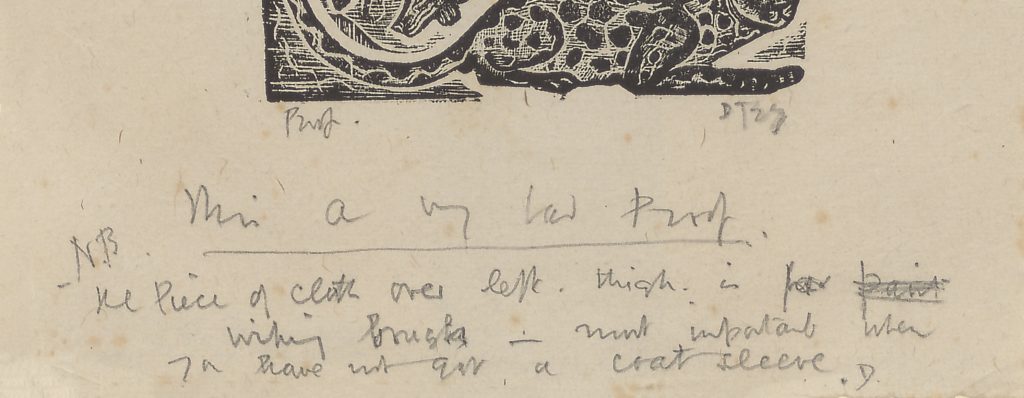 Proof.
This a very bad Proof.
N.B.
the Piece of cloth over left. thigh. is for paint
wiping brushes — most important when
you have not got a coat sleeve. D